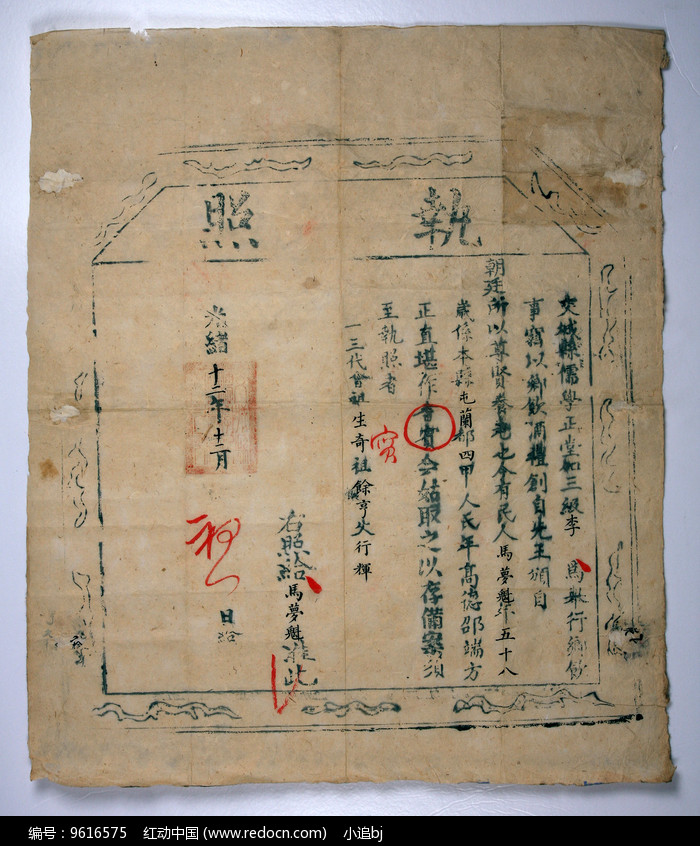 執照
交城縣儒學正堂加三級李 為舉行鄉飲
事竊以鄉飲酒禮創自先王頒自
朝廷所以尊賢養老也今有民人馬夢魁年五十八
歲係本縣屯蘭都四甲人民年高德邵端方
正直堪作耆賓合給照之以存備案須
至執照者
一三代曾祖生奇祖餘亨父行輝
賓
右照給馬夢魁准此
光緒十二年十二月 日給
编号：9616575 红动中国 (www.redocn.com) 小追bj